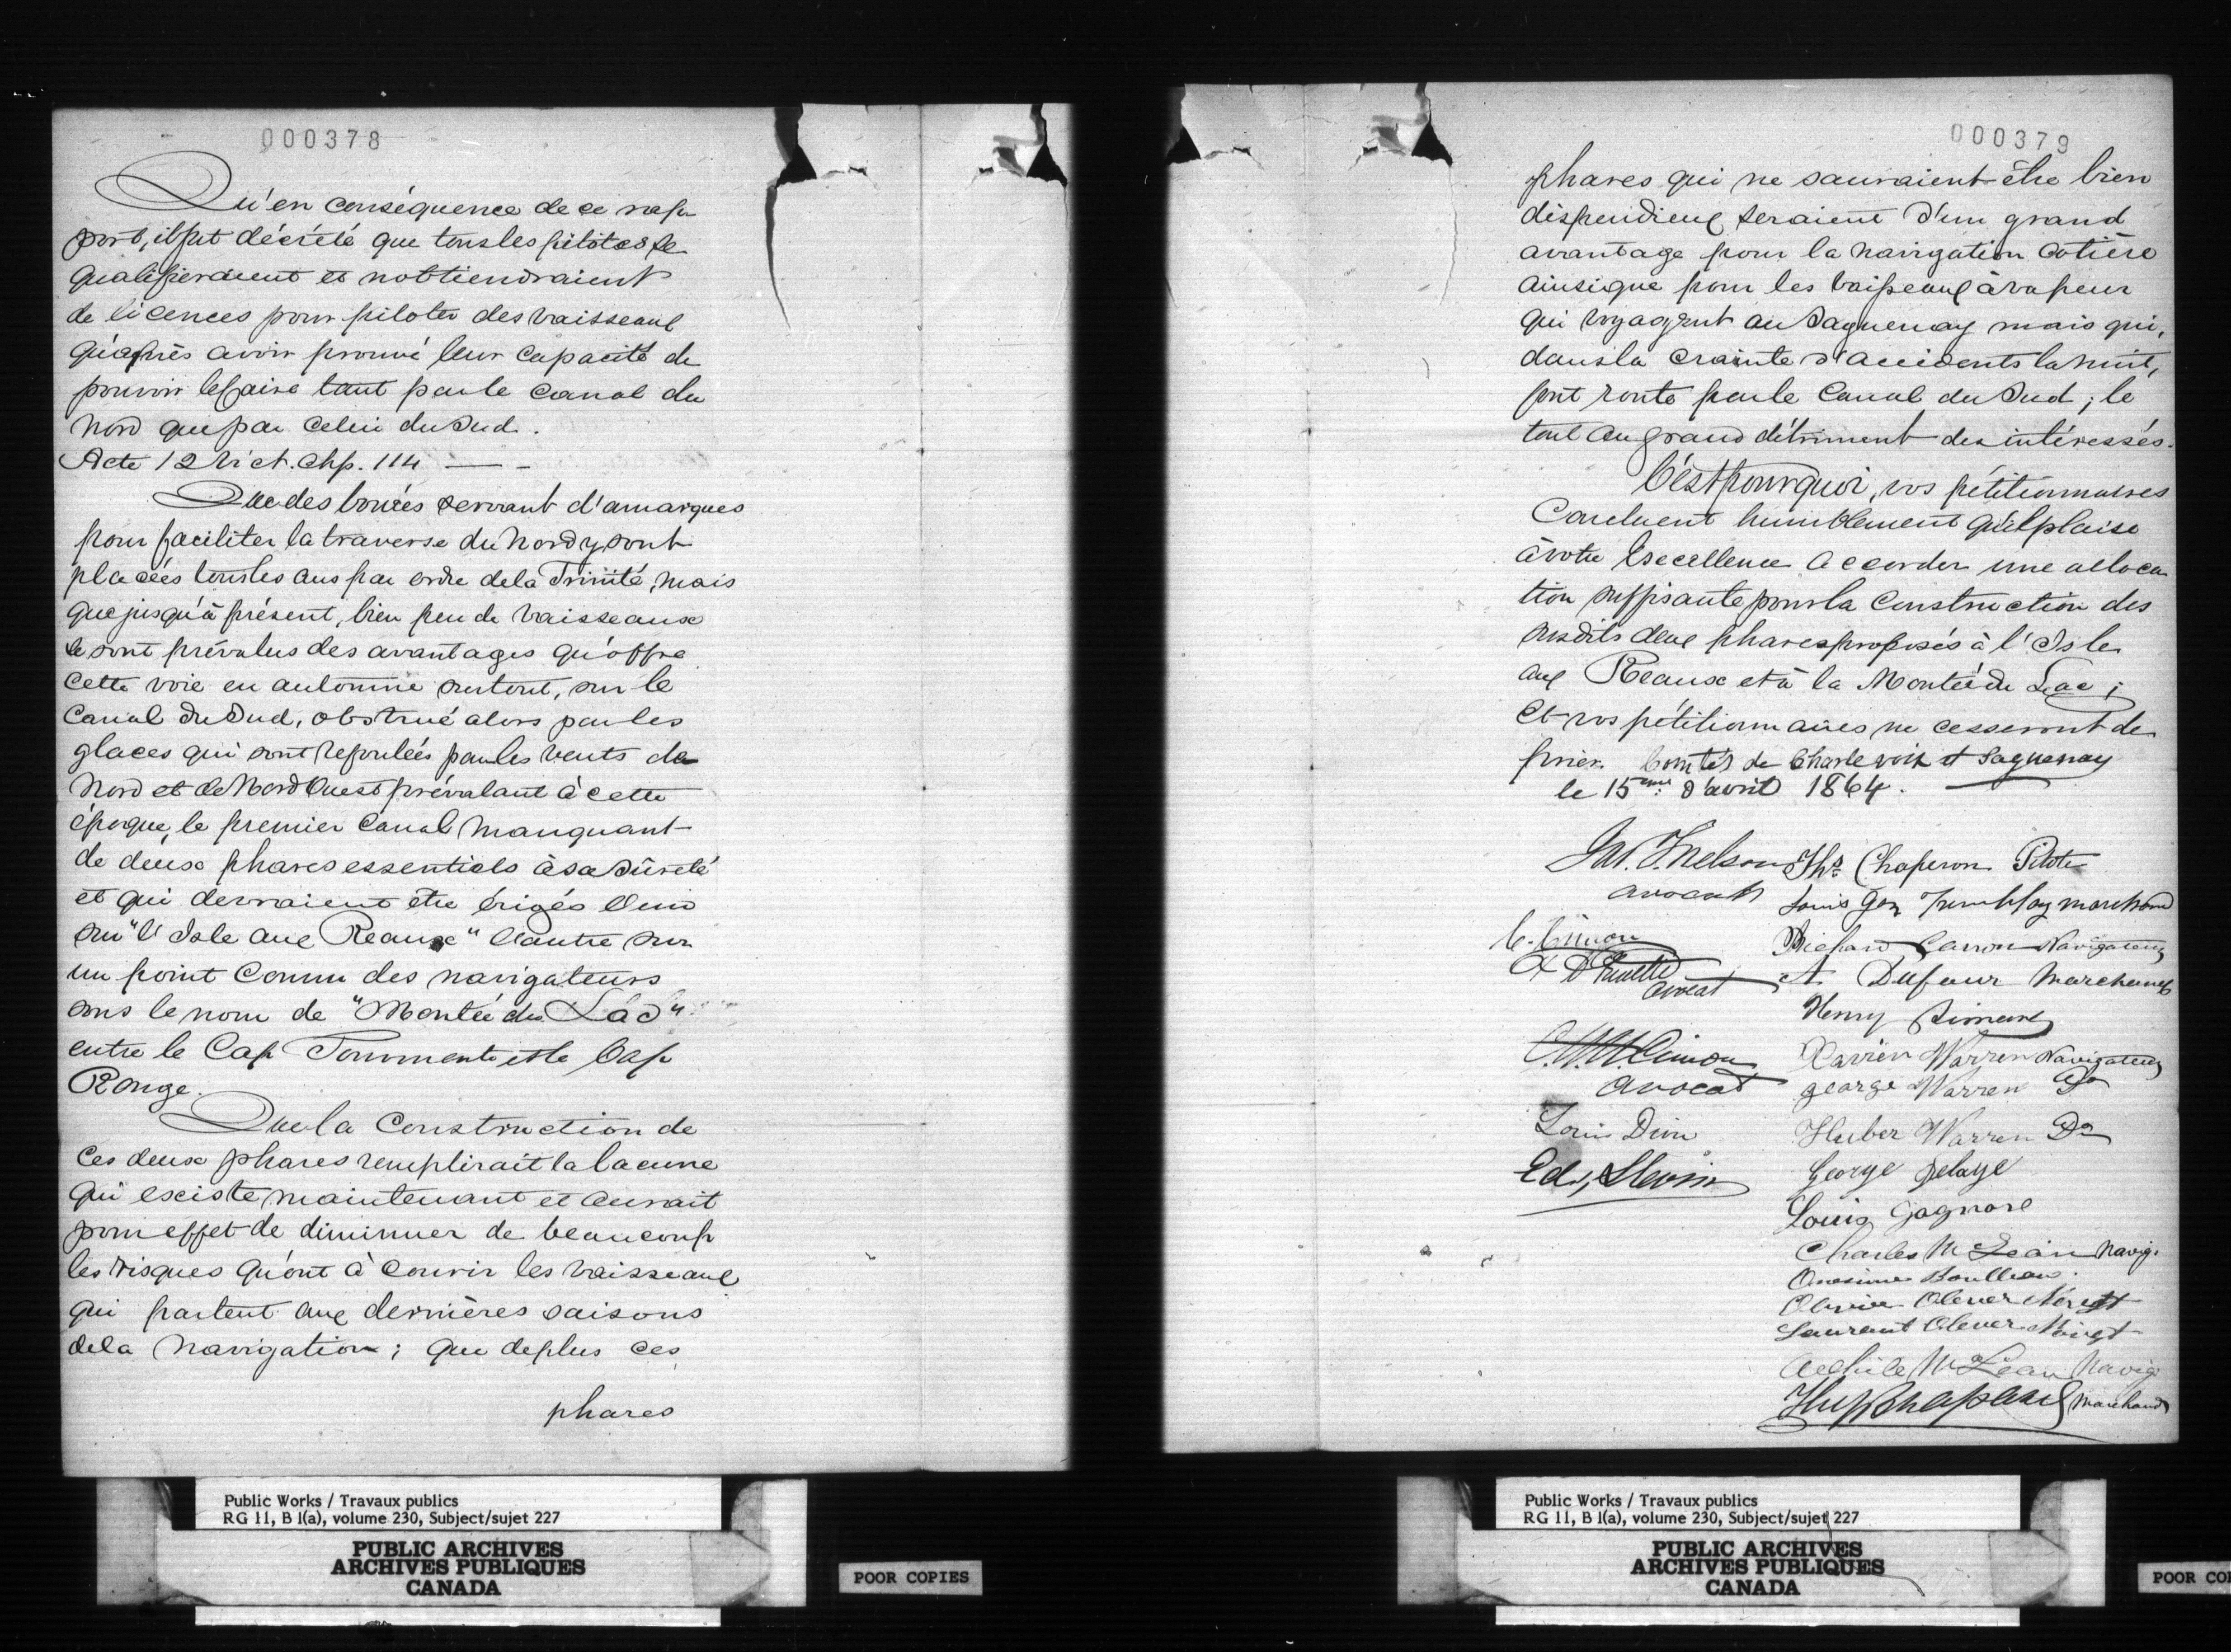 000378
Qu'en conséquence de ce rap
port, il fut décrété que tous les pilotes se
qualifieraient et n'obtiendraient
de licences pour piloter des vaisseaux
qu'après avoir prouvé leur capacité de
pouvoir le faire tant par le canal du
Nord que par celui du Sud.
Acte 12 Vict. Chp. 114 — -
Que des bouées servant d'amarques
pour faciliter la traverse du Nord y sont
placées tous les ans par ordre de la Trinité, mais
que jusqu'à présent, bien peu de vaisseaux
se sont prévalus des avantages qu'offre
cette voie en automne surtout, sur le
Canal du Sud, obstrué alors par les
glaces qui sont refoulées par les vents de
Nord et de Nord Ouest prévalant à cette
époque, le premier canal manquant
de deux phares essentiels à sa sûreté
et qui devraient être érigés l'un
sur "l'Isle aux Reaux" l'autre sur
un point connu des navigateurs
sous le nom de "Montée du Lac"
entre le Cap Tourmente et le Cap
Rouge.
Que la Construction de
ces deux phares remplirait la lacune
qui existe maintenant et aurait
pour effet de diminuer de beaucoup
les risques qu'ont à courir les vaisseaux
qui partent aux dernières saisons
de la navigation ; que de plus ces
phares
Public Works / Travaux publics
RG 11, B 1(a), volume 230, Subject/sujet 227
PUBLIC ARCHIVES
ARCHIVES PUBLIQUES
CANADA
POOR COPIES
000379
phares qui ne sauraient être bien
dispendieux seraient d'un grand
avantage pour la navigation cotière
ainsi que pour les vaisseaux à vapeur
qui voyagent au Saguenay mais qui,
dans la crainte d'accidents la nuit,
font route par le Canal du Sud ; le
tout au grand détriment des intéressés.
C'est pourquoi, vos pétitionnaires
Concluent humblement qu'il plaise
à votre Excellence accorder une alloca
tion suffisante pour la construction des
susdits deux phares proposés à l'Isle
aux Reaux et à la Montée du Lac ;
Et vos pétitionnaires ne cesseront de
prier. Comtés de Charlevoix et Saguenay
le 15eme d'avril 1864.
Nelson
avocat
Ths Chaperon Pilote
Louis Tremblay marchand
C. Cimon
avocat
Caron Navigateur
A Dufour Marchand
Henry Simard
Cimon
avocat
Xavier Warren Navigateur
george Warren Do
Louis Dion
Huber Warren Do
Ed. Slevin
George
Louis Gagnore
Charles McLean Navig.
Onesime Boulleau
Olivier
Laurent
Achile McLean Navig
Marchand
Public Works / Travaux publics
RG 11, B 1(a), volume 230, Subject/sujet 227
PUBLIC ARCHIVES
ARCHIVES PUBLIQUES
CANADA
POOR CO